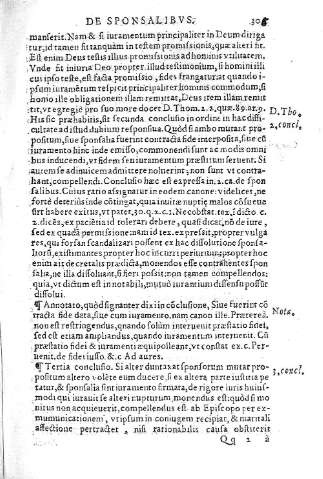 DE SPONSALIBVS. 306
manserit. Nam & si iuramentum principaliter in Deum dirigatur,
id tamen fit tanquàm in testem promissionis, quæ alteri fit.
Est enim Deus testis illius promissionis ad hominis vtilitatem.
Vnde sit iniuria Deo propter illud testimonium, si homini illicus
ipso teste, est facta promissio, fides frangatur: at quando ipsum
iuramẽtum respicit principaliter hominis commodum, si
homo ille obligationem illam remittat, Deus item illam remittit,
vt egregiè pro suo more docet D. Thom. 2. 2. quæ. 89. ar. 9.
D. Tho.
His sic præhabitis, sit secunda conclusio in ordine in hac difficultate
ad istud dubium responsiua. Quòd si ambo mutant propositum,
2. cõcl.
siue sponsalia fuerint contracta fide interposita, siue cũ
iuramento hinc inde emisso, commonendi sunt ac modis omnibus
inducendi, vt fidem seu iuramentum præstitum seruent. Si
autem se adinuicem admittere noluerint: non sunt vt contrahant,
compellendi. Conclusio hæc est expressa in. 2. ca. de sponsalibus.
Cuius ratio assignatur in eodem canone: videlicet, ne
fortè deterius inde cõtingat, quia inuitæ nuptię malos cõsueuerint
habere exitus, vt patet. 30. q. 2. c. 1. Nec obstat. tex. i dicto c.
2. dicẽs, ex paciẽtia id tolerari debere, quasi dicat, nõ de iure,
sed ex quadã permissione: nam id tex. expressit, propter vulgares,
qui forsan scandalizari possent ex hac dissolutione sponsaliorũ,
existimantes propter hoc incurri periurium: propter hoc
enim ait decretalis prædicta, monendos esse contrahentes sponsalia,
ne illa dissoluant, si fieri possit: non tamen compellendos:
quia, vt dictum est in notabili, mutuo iurantium dissensu possũt
dissolui.
¶ Annotato, quòd signanter dixi in cõclusione, Siue fuerint cõtracta
Nota.
fide data, siue cum iuramento. nam canon ille. Præterea.
non est restringendus, quando solùm interuenit præstatio fidei,
sed est etiam ampliandus, quando iuramentum interuenit. Cũ
præstatio fidei & iuramenti æquipolleant, vt constat ex. c. Peruenit.
de fideiusso. & c. Ad aures.
¶ Tertia conclusio. Si alter duntaxat sponsorum mutat propositum
3. concl.
altero volẽte eum ducere, si ex altera parte iustitia petatur,
& sponsalia sint iuramento firmata, de rigore iuris huiusmodi
qui iurauit se alteri nupturum, monendus est: quòd si monitus
non acquieuerit, compellendus est ab Episcopo per exmumunicationem,
vt ipsum in coniugem recipiat, & maritali
affectione pertractet, nisi rationabilis causa obstiterit
Qq 2 à